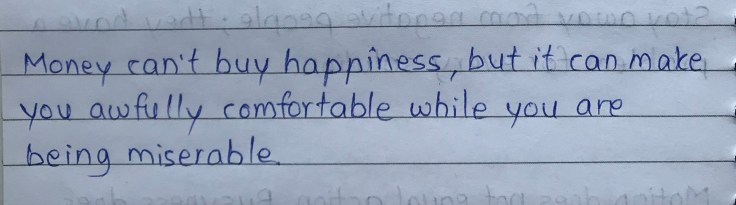 Money can't buy happiness, but it can make
you awfully comfortable while you are
being miserable.